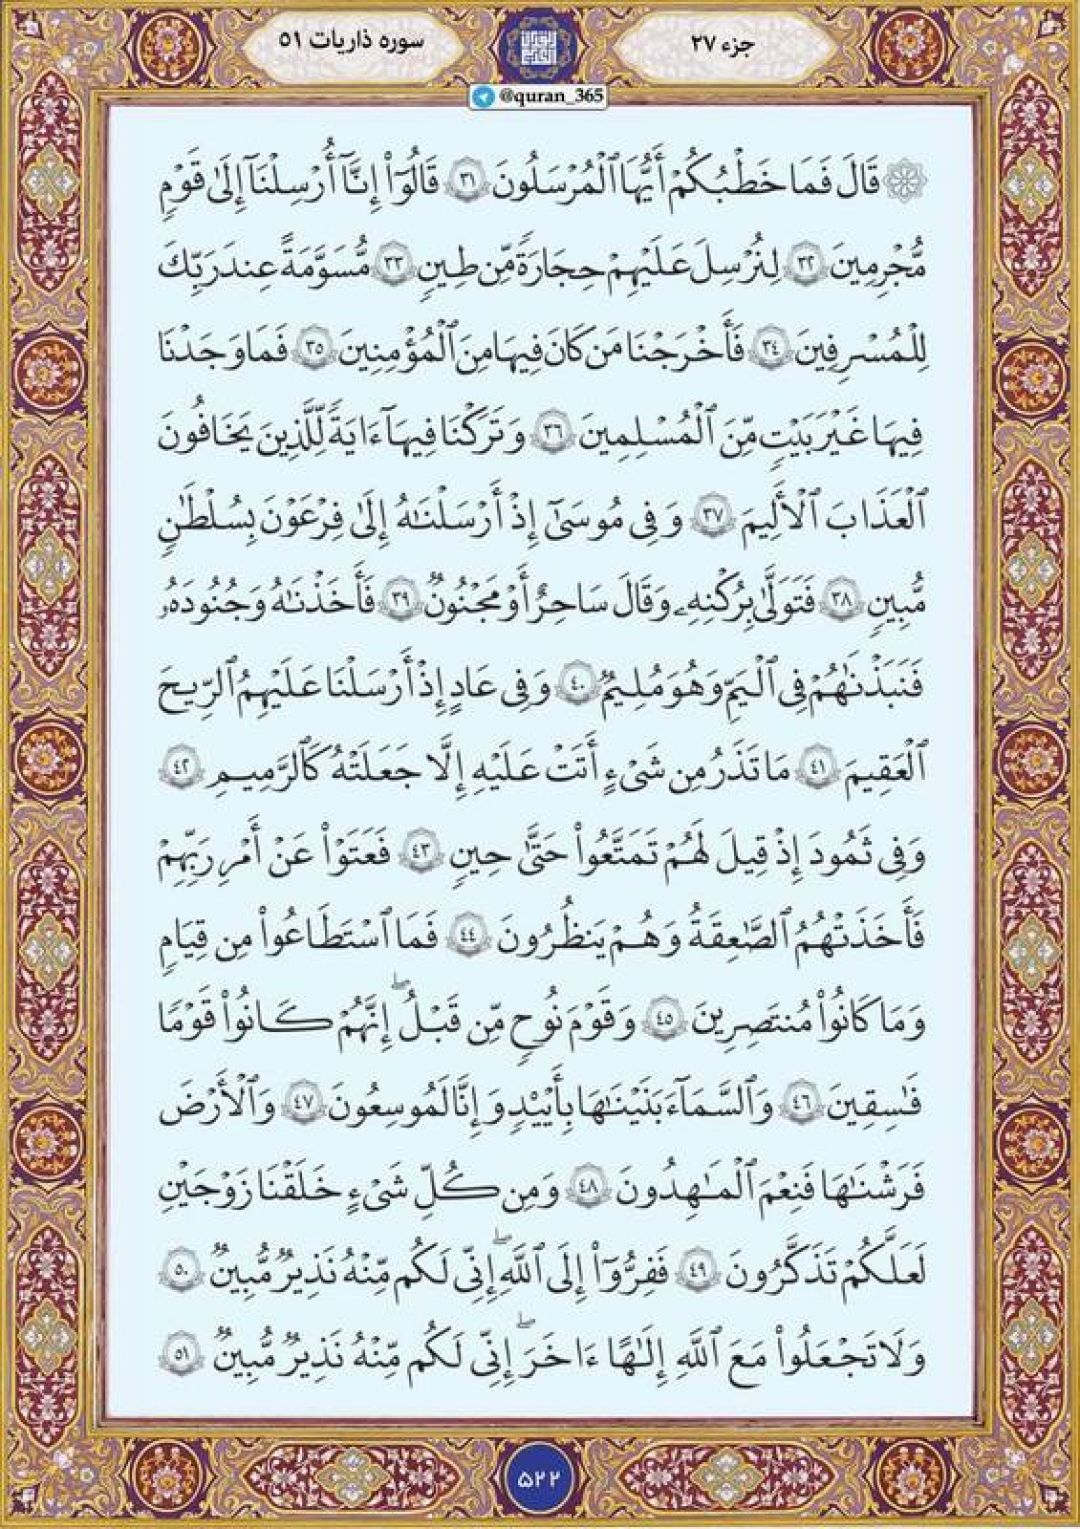 سوره ذاریات ۵۱
جزء ۲۷
@quran_365
۞ قَالَ فَمَا خَطْبُكُمْ أَيُّهَا ٱلْمُرْسَلُونَ ٣١ قَالُوٓا۟ إِنَّآ أُرْسِلْنَآ إِلَىٰ قَوْمٍ
مُّجْرِمِينَ ٣٢ لِنُرْسِلَ عَلَيْهِمْ حِجَارَةً مِّن طِينٍ ٣٣ مُّسَوَّمَةً عِندَ رَبِّكَ
لِلْمُسْرِفِينَ ٣٤ فَأَخْرَجْنَا مَن كَانَ فِيهَا مِنَ ٱلْمُؤْمِنِينَ ٣٥ فَمَا وَجَدْنَا
فِيهَا غَيْرَ بَيْتٍ مِّنَ ٱلْمُسْلِمِينَ ٣٦ وَتَرَكْنَا فِيهَآ ءَايَةً لِّلَّذِينَ يَخَافُونَ
ٱلْعَذَابَ ٱلْأَلِيمَ ٣٧ وَفِى مُوسَىٰٓ إِذْ أَرْسَلْنَـٰهُ إِلَىٰ فِرْعَوْنَ بِسُلْطَـٰنٍ
مُّبِينٍ ٣٨ فَتَوَلَّىٰ بِرُكْنِهِۦ وَقَالَ سَـٰحِرٌ أَوْ مَجْنُونٌ ٣٩ فَأَخَذْنَـٰهُ وَجُنُودَهُۥ
فَنَبَذْنَـٰهُمْ فِى ٱلْيَمِّ وَهُوَ مُلِيمٌ ٤٠ وَفِى عَادٍ إِذْ أَرْسَلْنَا عَلَيْهِمُ ٱلرِّيحَ
ٱلْعَقِيمَ ٤١ مَا تَذَرُ مِن شَىْءٍ أَتَتْ عَلَيْهِ إِلَّا جَعَلَتْهُ كَٱلرَّمِيمِ ٤٢
وَفِى ثَمُودَ إِذْ قِيلَ لَهُمْ تَمَتَّعُوا۟ حَتَّىٰ حِينٍ ٤٣ فَعَتَوْا۟ عَنْ أَمْرِ رَبِّهِمْ
فَأَخَذَتْهُمُ ٱلصَّـٰعِقَةُ وَهُمْ يَنظُرُونَ ٤٤ فَمَا ٱسْتَطَـٰعُوا۟ مِن قِيَامٍ
وَمَا كَانُوا۟ مُنتَصِرِينَ ٤٥ وَقَوْمَ نُوحٍ مِّن قَبْلُ ۖ إِنَّهُمْ كَانُوا۟ قَوْمًا
فَـٰسِقِينَ ٤٦ وَٱلسَّمَآءَ بَنَيْنَـٰهَا بِأَيْي۟دٍ وَإِنَّا لَمُوسِعُونَ ٤٧ وَٱلْأَرْضَ
فَرَشْنَـٰهَا فَنِعْمَ ٱلْمَـٰهِدُونَ ٤٨ وَمِن كُلِّ شَىْءٍ خَلَقْنَا زَوْجَيْنِ
لَعَلَّكُمْ تَذَكَّرُونَ ٤٩ فَفِرُّوٓا۟ إِلَى ٱللَّهِ ۖ إِنِّى لَكُم مِّنْهُ نَذِيرٌ مُّبِينٌ ٥٠
وَلَا تَجْعَلُوا۟ مَعَ ٱللَّهِ إِلَـٰهًا ءَاخَرَ ۖ إِنِّى لَكُم مِّنْهُ نَذِيرٌ مُّبِينٌ ٥١
۵۲۲